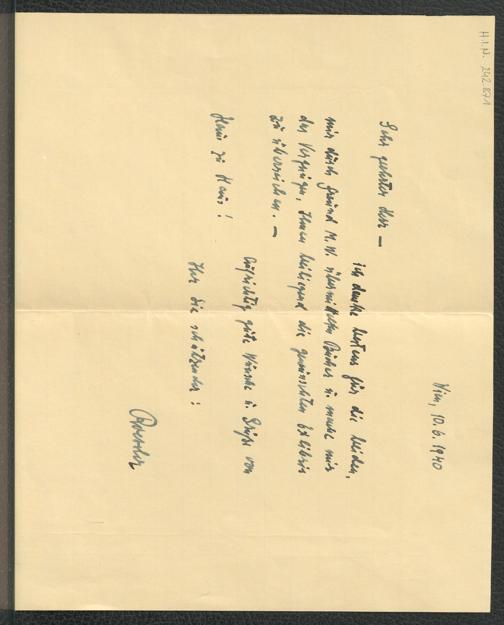 H.I.N. 242.871
Wien, 10.6.1940
Sehr geehrter Herr —
ich danke bestens für die beiden,
mir durch Freund M.W. übermittelten Bücher u. mache mir
das Vergnügen, Ihnen beiliegend die gewünschten Exlibris
zu überreichen. —
Aufrichtig gute Wünsche u. Grüße von
Haus zu Haus!
Ihr Sie schätzender: